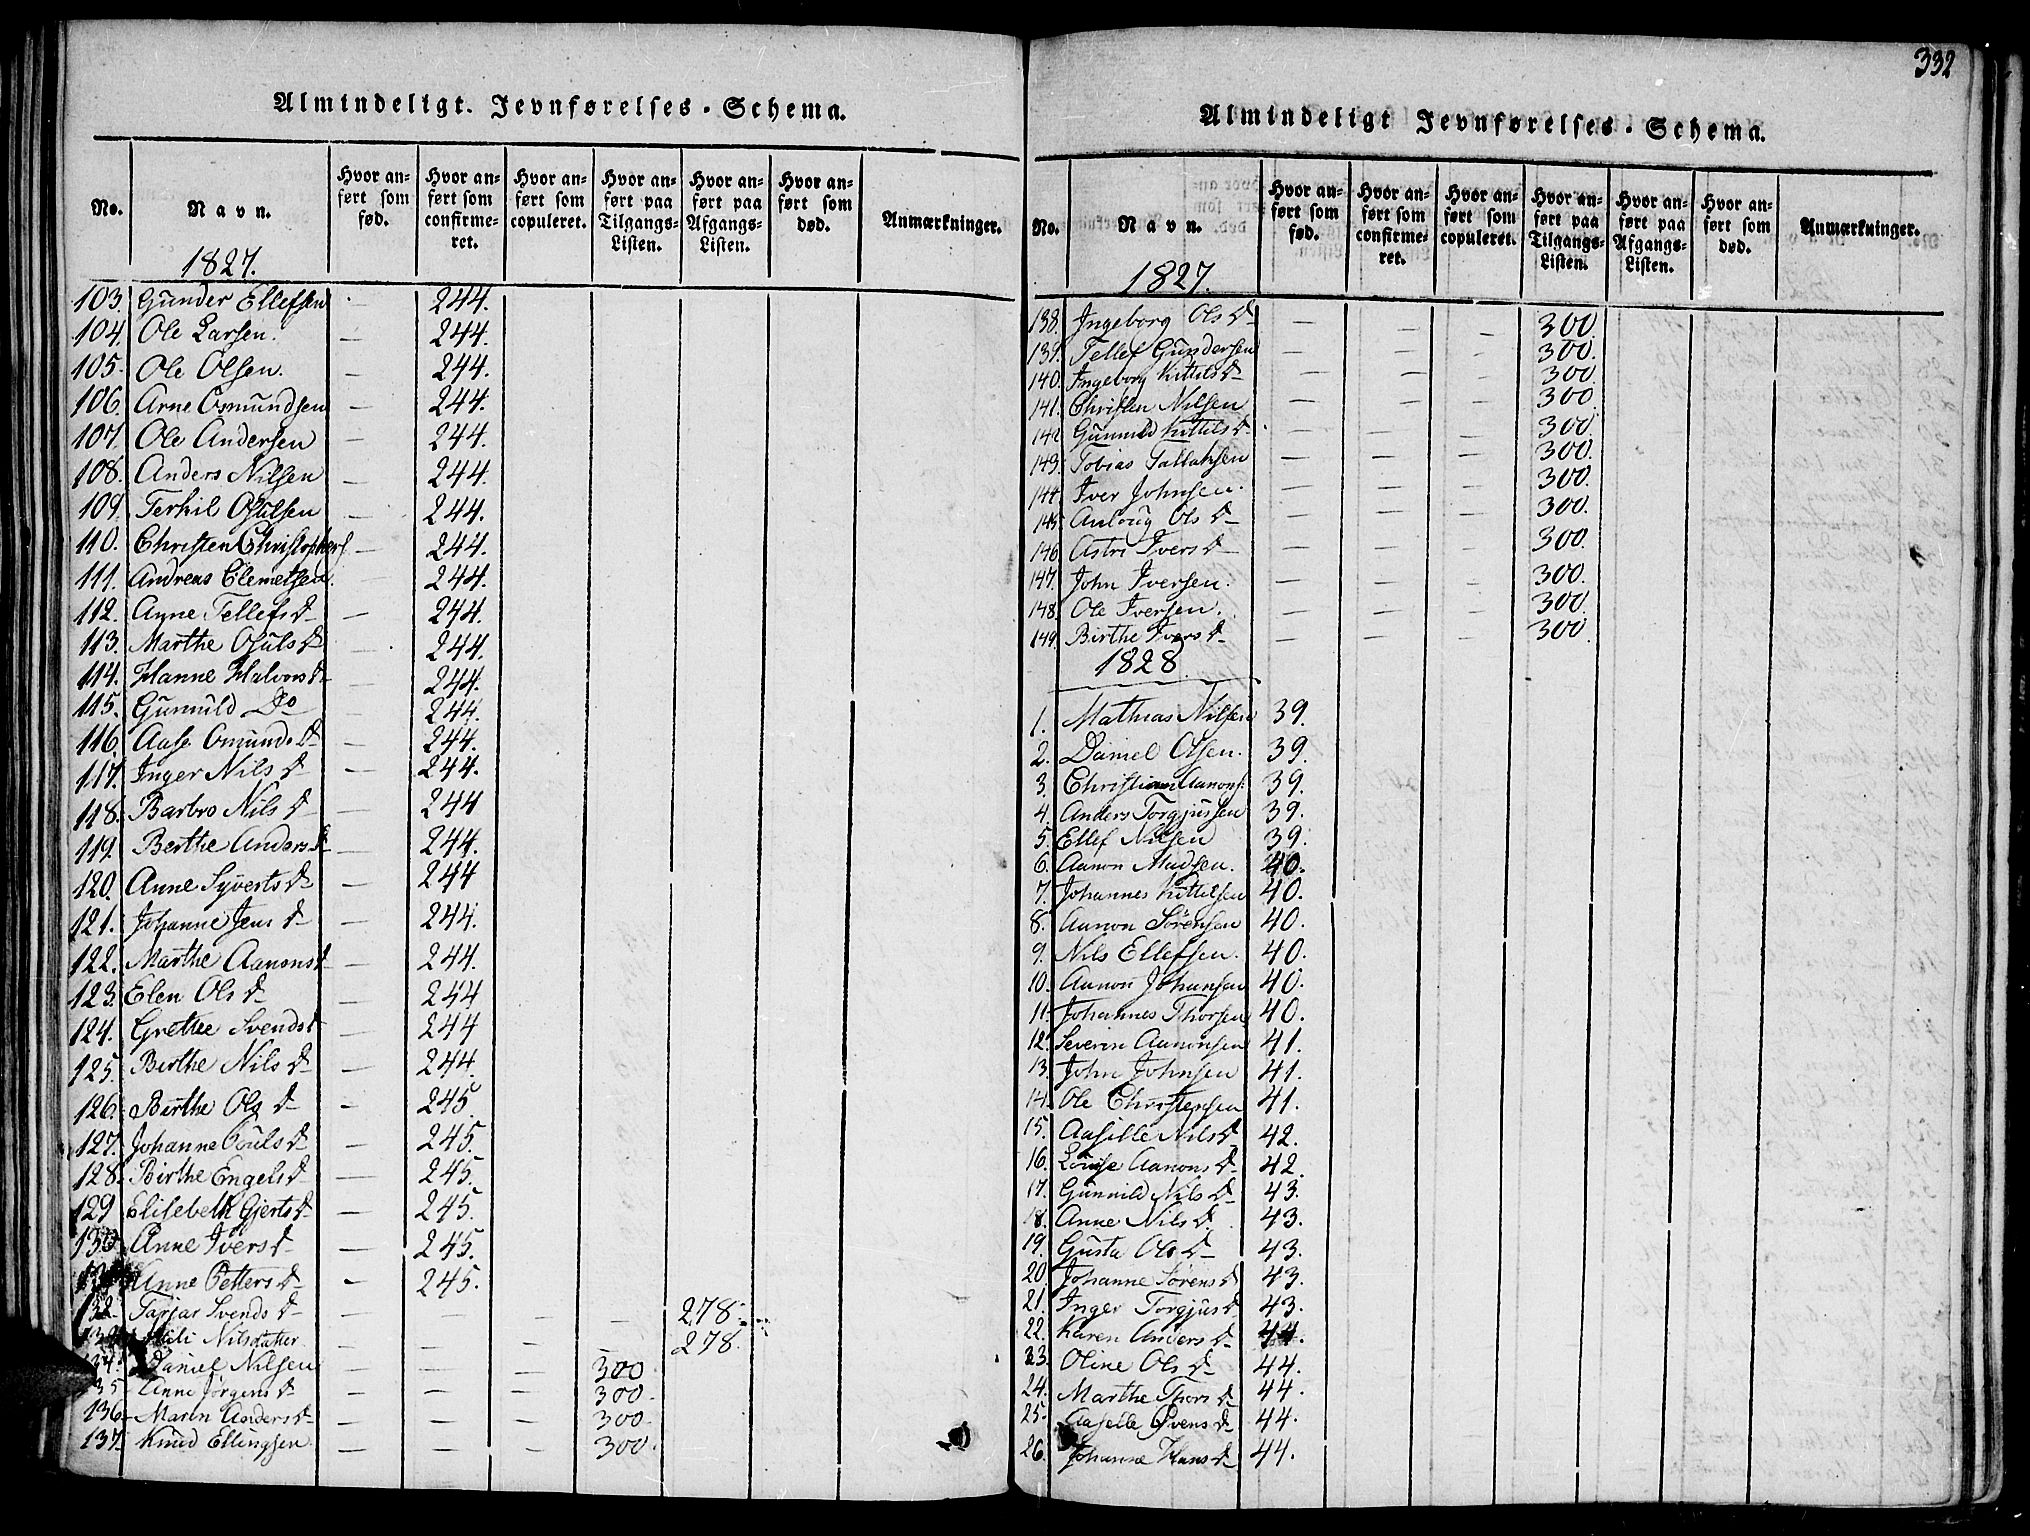 Almindeligt. Jevnførelses-Schema.
No. Navn. Hvor anført som fød. Hvor anført som confirmeret. Hvor anført som copuleret. Hvor anført paa Tilgangs-Listen. Hvor anført paa Afgangs-Listen. Hvor anført som død. Anmærkninger.
1827.
103. Gunder Ellefsen — 244.
104. Ole Larsen. — 244.
105. Ole Olsen. — 244.
106. Arne Osmundsen — 244.
107. Ole Andersen — 244.
108. Anders Nilsen — 244.
109. Terkil Osulsen — 244.
110. Christen Christophers — 244.
111. Andreas Clemetsen. 244.
112. Anne Tellefs D — 244.
113. Marthe Osuls D — 244.
114. Hanne Halvors D — 244.
115. Gunnild Do — 244.
116. Aase Omunds D — 244.
117. Inger Nils D — 244.
118. Barbro Nils D — 244
119. Berthe Anders D — 244.
120. Anne Syverts D — 244
121. Johanne Jens D — 244.
122. Marthe Aanons D — 244.
123. Elen Ols D — 244
124. Grethe Svends D — 244
125. Birthe Nils D — 244.
126. Birthe Ols D — 245.
127. Johanne Osuls D — 245.
128. Birthe Engels D — 245.
129 Elisebeth Gjerts D — 245.
130 Anne Ivers D — 245.
Anne Petters D — 245.
132 Tarjar Svends D — — — — 278.
Nilsdatter — — — — 278.
134. Daniel Nilsen — — — 300
135 Anne Jørgens D — — — 300.
136. Maren Anders D — — — 300.
137. Knud Ellingsen — — — 300.
332
Almindeligt Jevnførelses-Schema.
No. Navn. Hvor anført som fød. Hvor anført som confirmeret. Hvor anført som copuleret. Hvor anført paa Tilgangs-Listen. Hvor anført paa Afgangs-Listen. Hvor anført som død. Anmærkninger.
1827.
138. Ingeborg Ols D — — — 300.
139. Tellef Gundersen — — — 300.
140. Ingeborg Kittils D — — — 300.
141. Christen Nilsen — — — 300
142 Gunnild Kittils D — — — 300.
143. Tobias Tallaksen — — — 300.
144. Iver Johnsen. — — — 300.
145. Anloug Ols D — — — 300.
146 Astri Ivers D — — — 300.
147. John Iversen. — — — 300.
148. Ole Iversen. — — — 300.
149. Birthe Ivers D — — — 300.
1828
1. Mathias Nilsen 39.
2. Daniel Olsen. 39.
3. Christian Aanons. 39.
4. Anders Torgjussen 39.
5. Ellef Nilsen 39.
6. Aanon Madsen. 40.
7. Johannes Kittelsen 40.
8. Aanon Sørensen 40.
9. Nils Ellefsen. 40.
10. Aanon Johansen 40.
11. Johannes Thorsen 40.
12. Severin Aanonsen 41.
13. John Johnsen 41.
14. Ole Christensen 41.
15. Aasille Nils D 42.
16. Louise Aanons D 42.
17. Gunnild Nils D 43.
18. Anne Nils D. 43.
19. Gusta Ols D 43.
20. Johanne Sørens D 43.
21. Inger Torgjus D 43.
22. Karen Anders D 44.
23. Oline Ols D 44.
24. Marthe Thors D 44.
25. Aaselle Svens D 44.
26. Johanne Hans D 44.